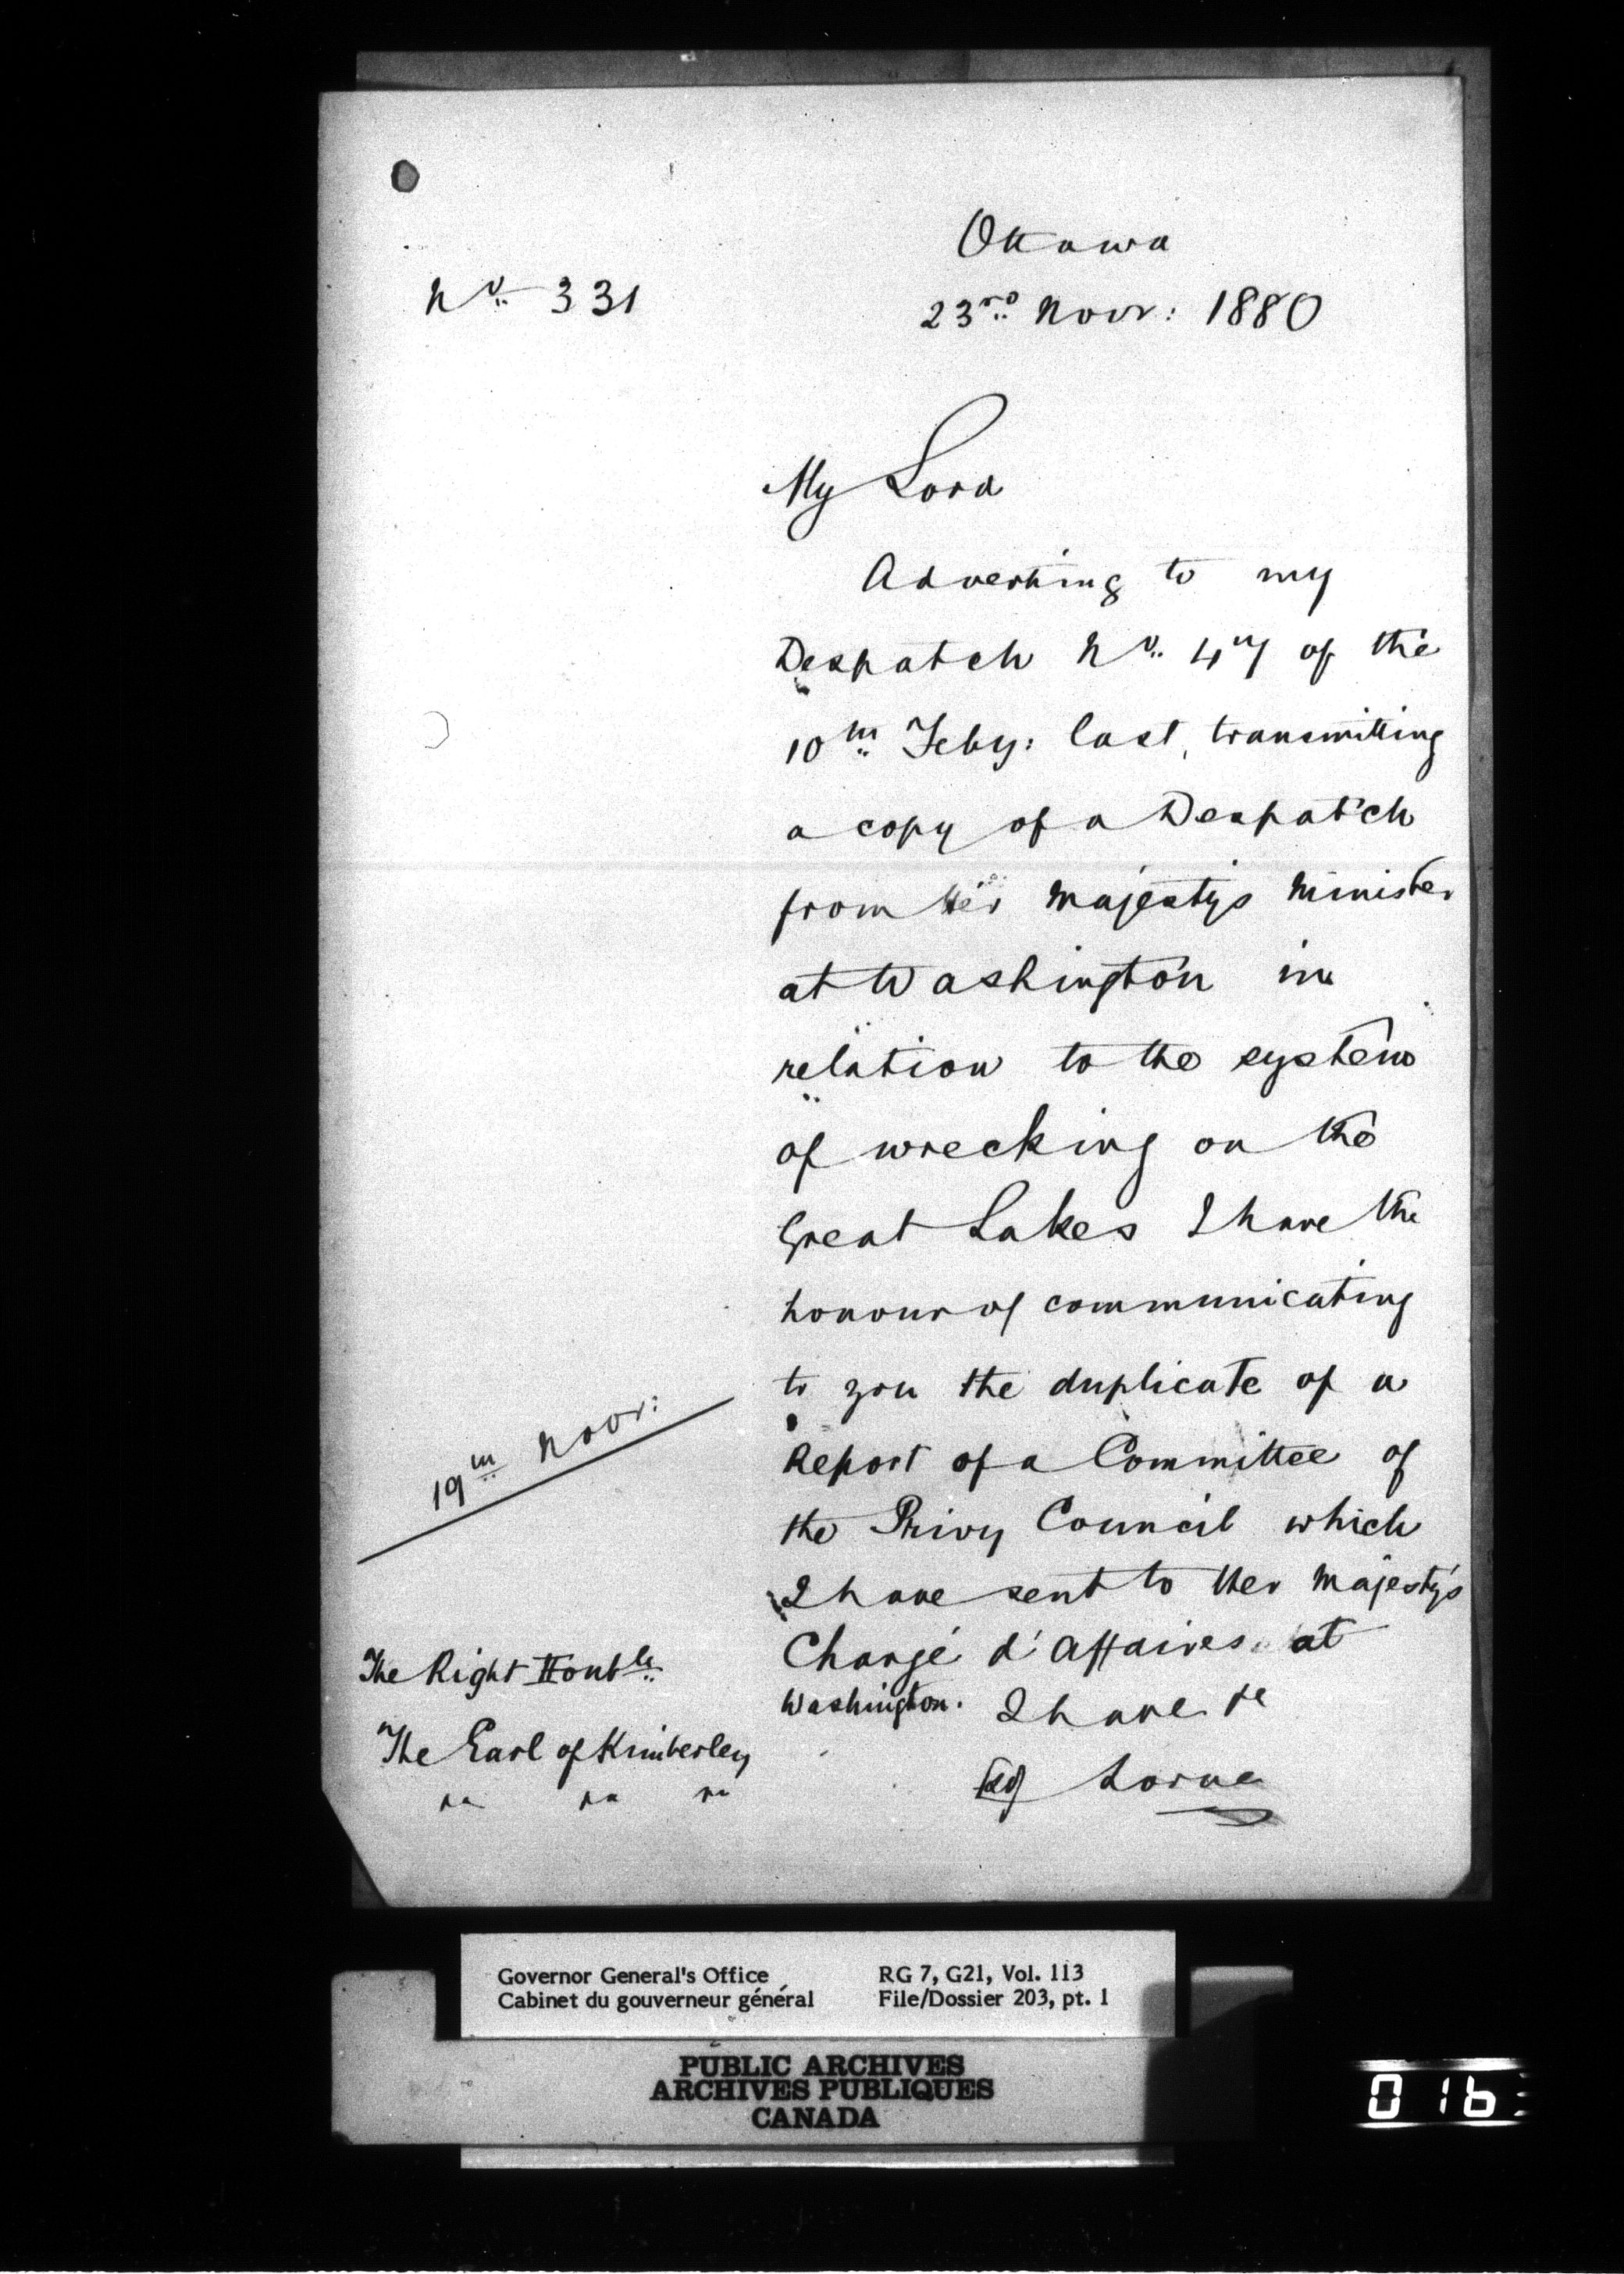 Ottawa
No. 331
23rd Novr: 1880
My Lord
Adverting to my
Despatch No. 47 of the
10th Feby: last, transmitting
a copy of a Despatch
from Her Majestys Minister
at Washington in
relation to the system
of wrecking on the
Great Lakes I have the
honour of communicating
to you the duplicate of a
19th Novr:
Report of a Committee of
the Privy Council which
I have sent to Her Majesty's
Chargé d'Affaires at
Washington. I have &c
(sd) Lorne
The Right Honble
The Earl of Kimberley
&c &c &c
Governor General's Office
Cabinet du gouverneur général
RG 7, G21, Vol. 113
File/Dossier 203, pt. 1
PUBLIC ARCHIVES
ARCHIVES PUBLIQUES
CANADA